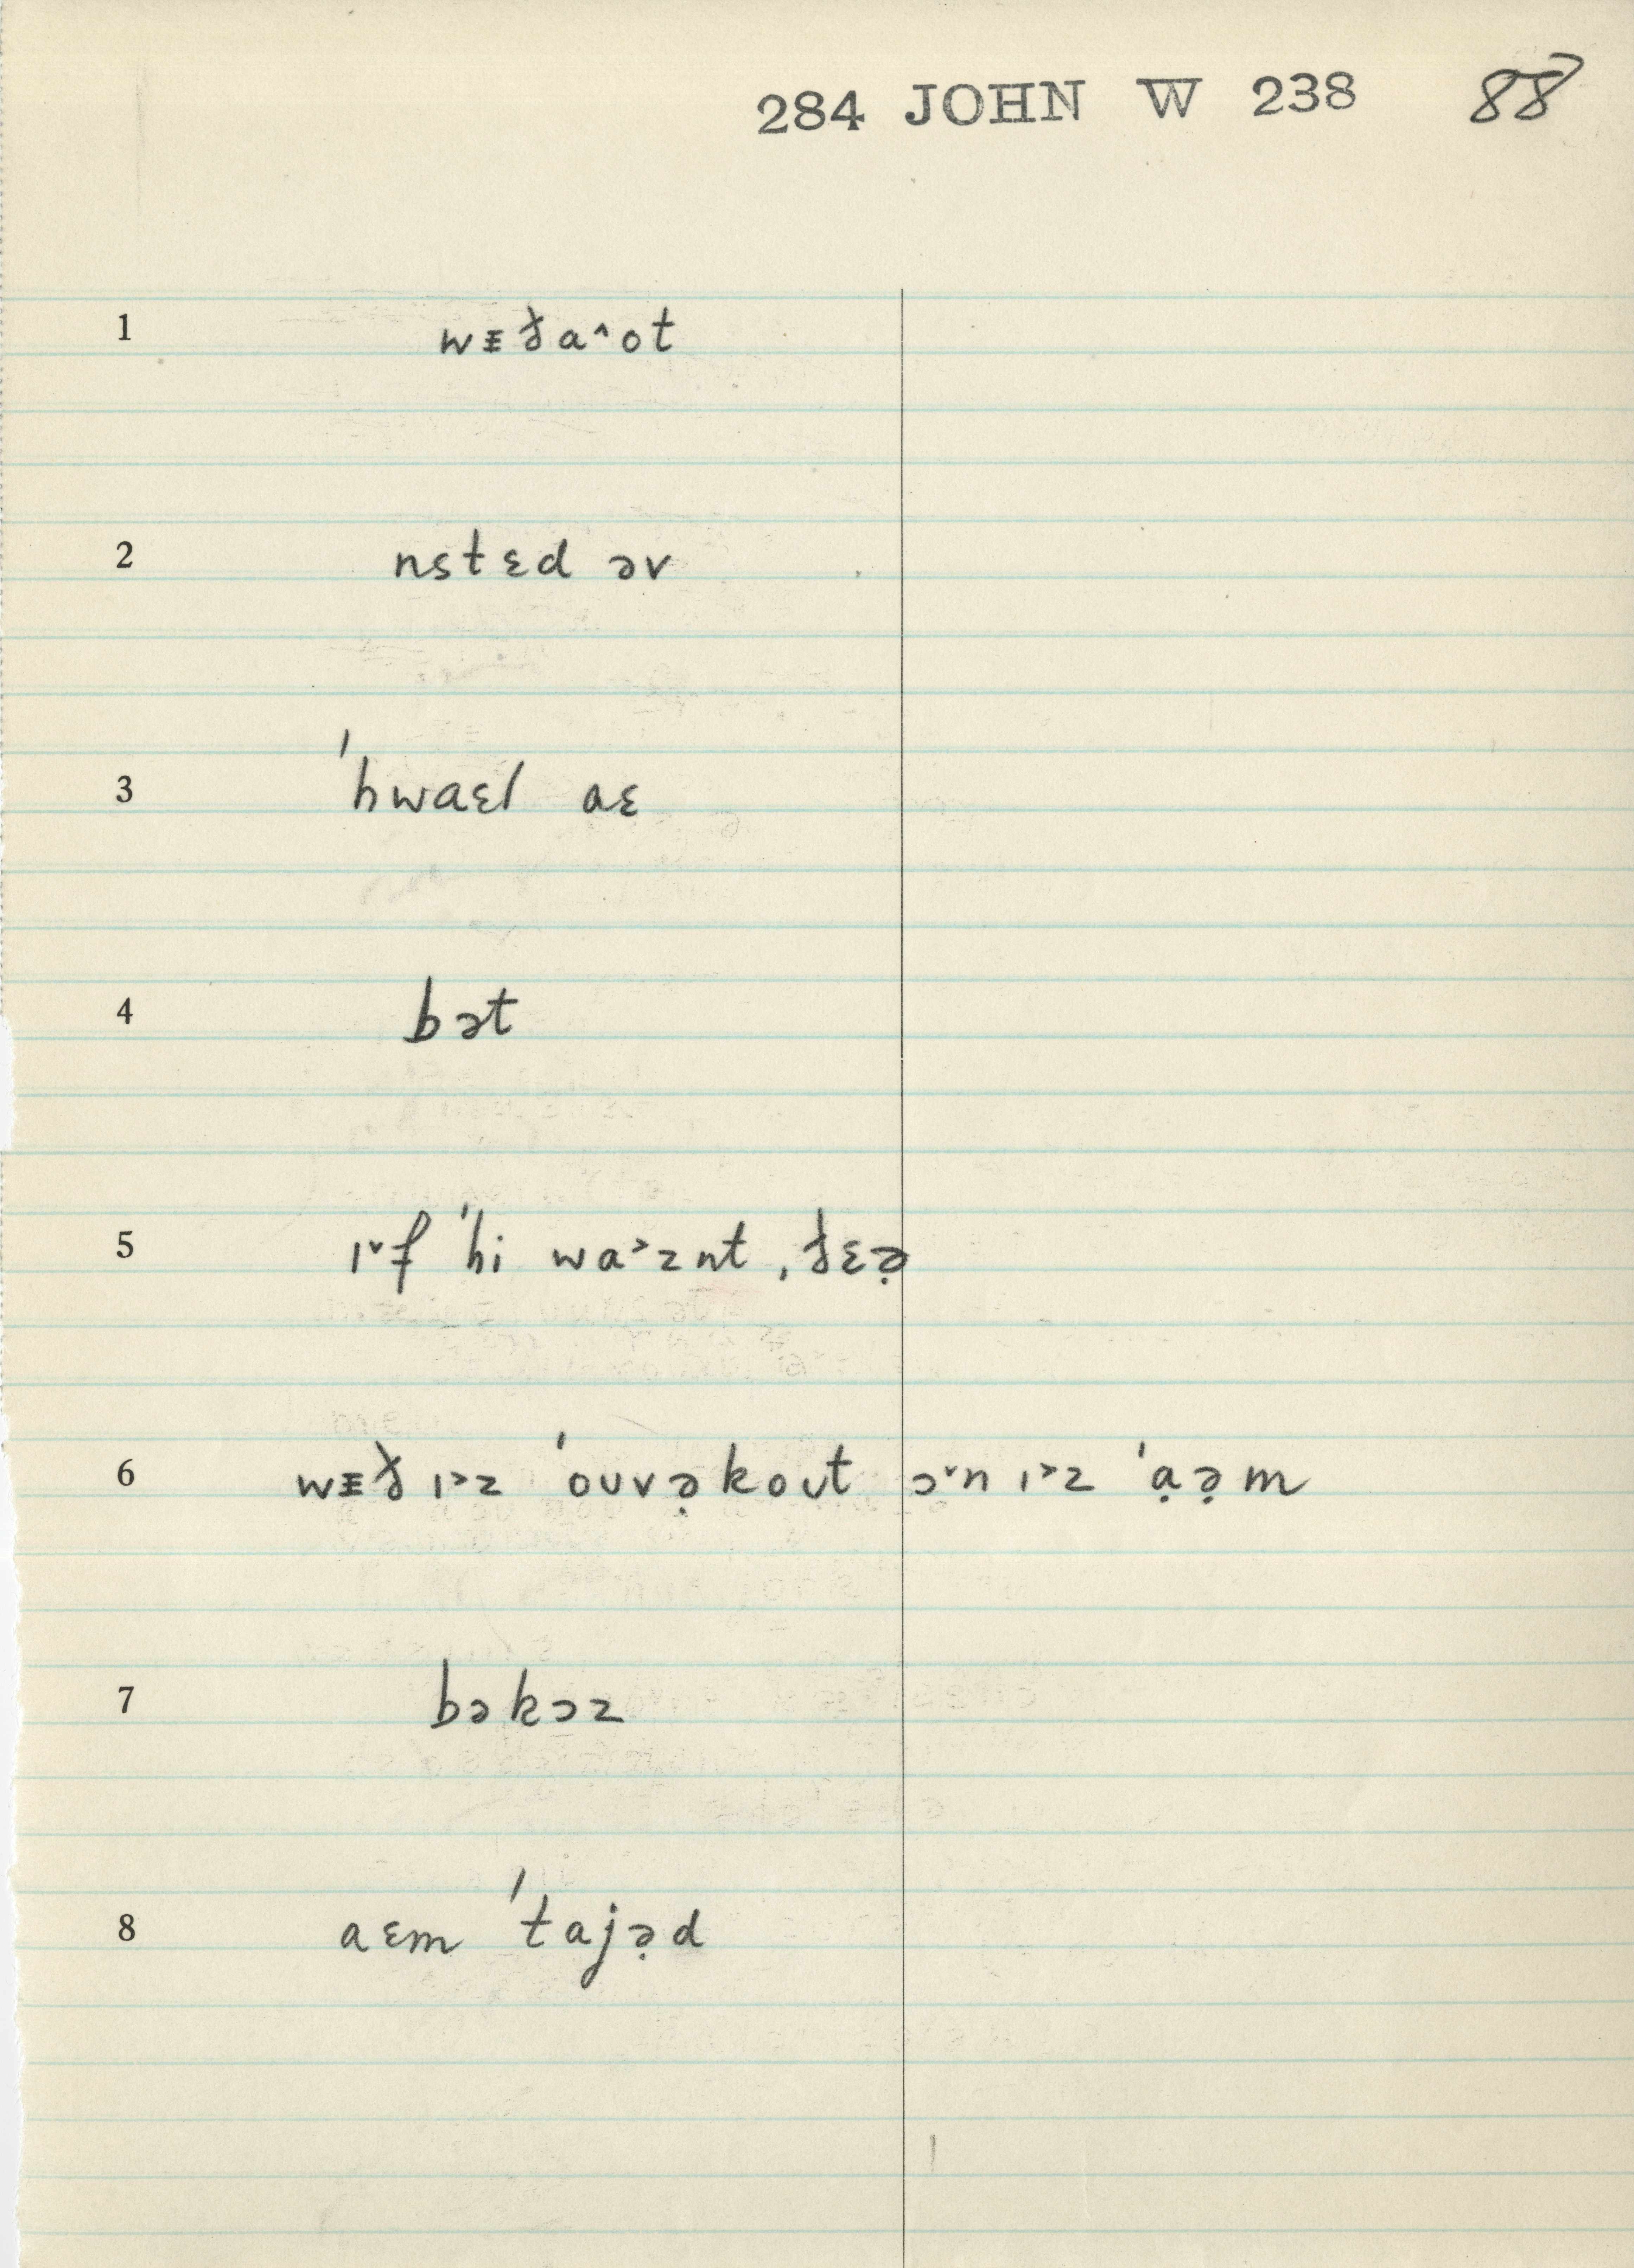 284 JOHN W 238 88
1 wᵻɣ̵a^ot
2 nstɛd əv
3 'hwaɛl aɛ
4 bət
5 ɪ˅f 'hi wa˃znt, ðɛə̣
6 wᵻð ɪ˃z 'ouvə̣kout ɔ˅n ɪ˃z 'ạə̣m
7 bəkɔz
8 aɛm 'tajə̣d